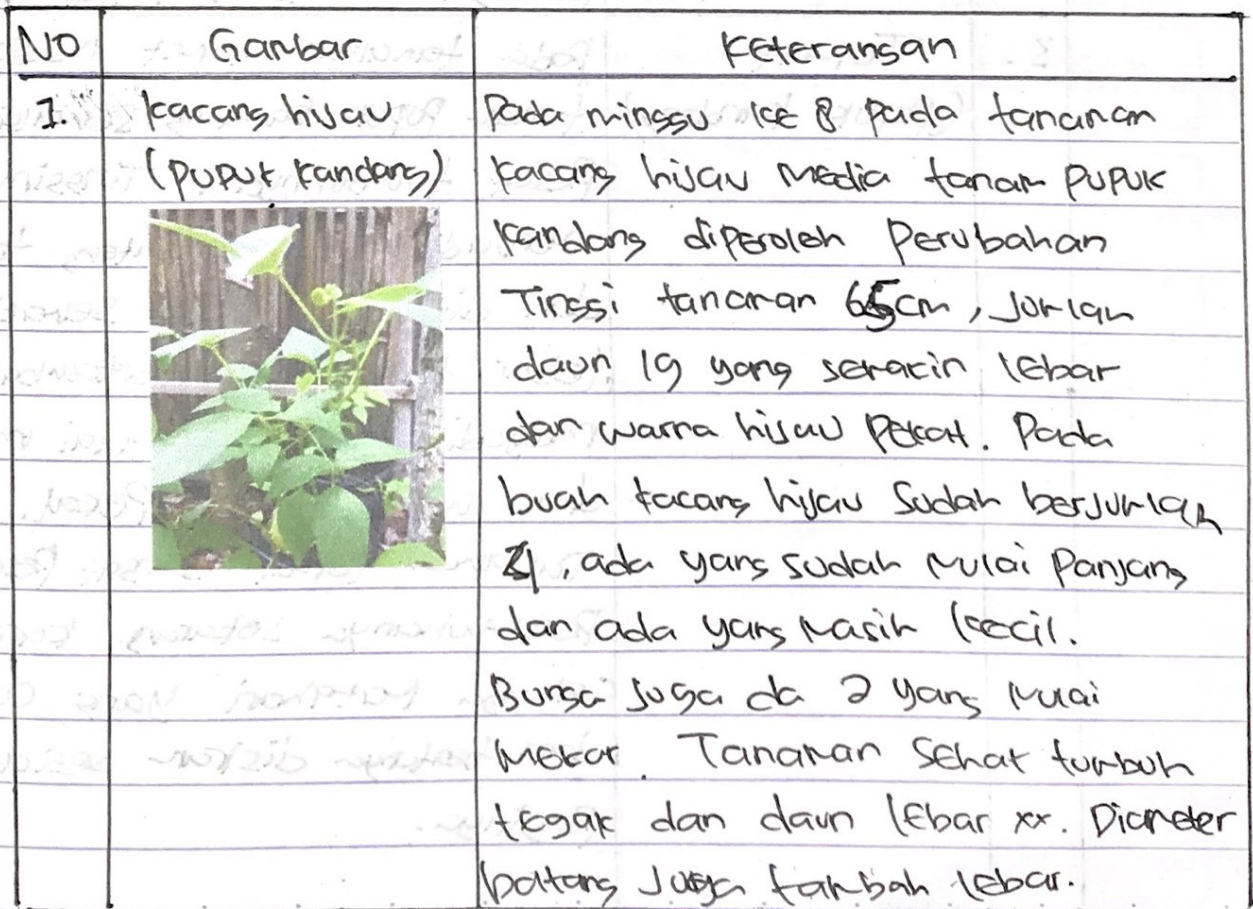 No Gambar Keterangan
1. Kacang hijau
(Pupuk Kandang)
Pada minggu ke 8 pada tanaman
kacang hijau media tanam pupuk
kandang diperoleh Perubahan
Tinggi tanaman 65cm, Jumlah
daun 19 yang semacin lebar
dan warna hijau Pekat. Pada
buah kacang hijau Sudah berjumlah
4, ada yang sudah Mulai Panjang
dan ada yang Masih kecil.
Bunga Juga da 2 yang Mulai
Mekar. Tanaman Sehat tumbuh
tegak dan daun lebar xx. Diameter
batang Juga tambah lebar.